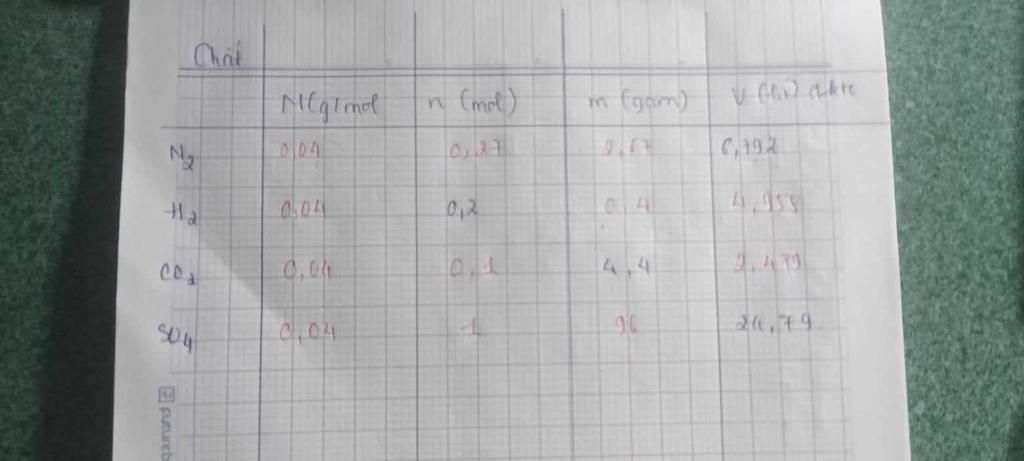 Chất
M(g/mol n (mol) m (gam) V (lít) đktc
N2 0,04 0,27 2,67 6,792
H2 0,04 0,2 0,4 4,958
CO2 0,04 0,1 4,4 2,479
SO4 0,04 1 96 24,79